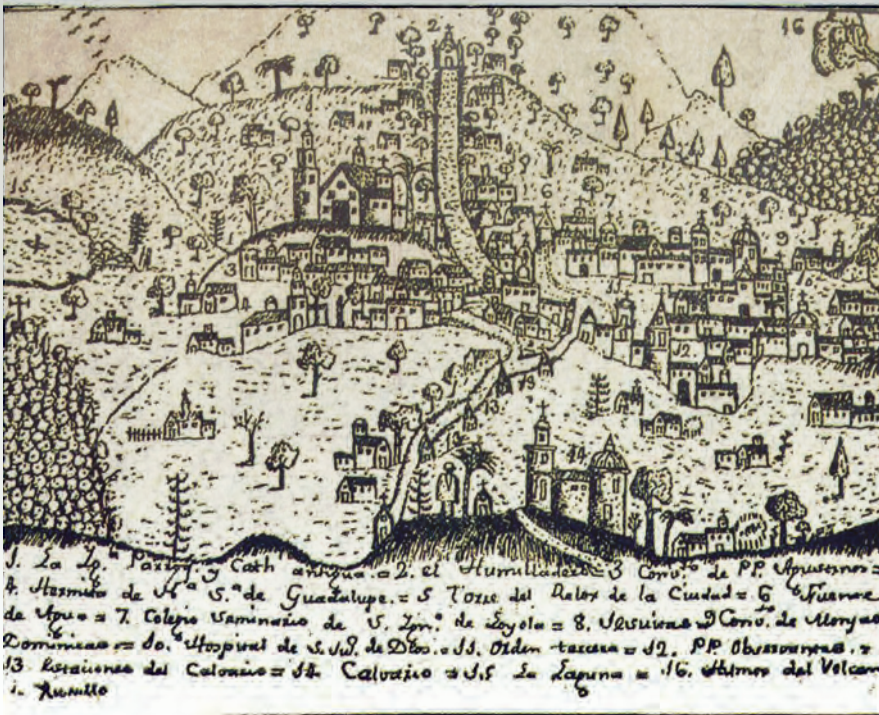 2
16
6
7
8
9
15
3
12
13
14
1. La Ig.ª y Cath antigua. = 2. el Humilladero = 3 Conv.to de PP. Agustinos =
4. Hermita de N.ª S.ª de Guadalupe. = 5 Torre del Relox de la Ciudad = 6 Fuente
de Agua = 7. Colegio Seminario de S. Ign.º de Loyola = 8. Jesuitas 9 Conv.to de Monjas
Dominicas = 10. Hospital de S. Ju.º de Dios. = 11. Orden tercera = 12. PP. Observantes. =
13 Estaciones del Calvario = 14. Calvario = 15 La Laguna = 16. Humos del Volcan